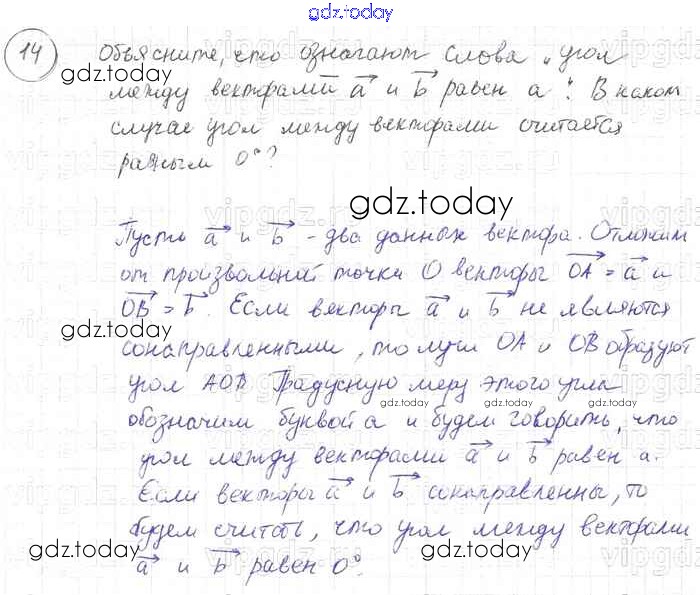 gdz.today
14 Объясните, что означают слова „угол
gdz.today
между векторами a и b равен a". В каком
случае угол между векторами считается
равным 0°?
gdz.today
Пусть a и b - два данных вектора. Отложим
от произвольной точки O векторы OA = a и
OB = b. Если векторы a и b не являются
gdz.today
сонаправленными, то лучи OA и OB образуют
угол AOB. Градусную меру этого угла
gdz.today gdz.today gdz.today
обозначим буквой a и будем говорить, что
угол между векторами a и b равен a.
Если векторы a и b сонаправленны, то
будем считать, что угол между векторами
gdz.today gdz.today gdz.today
a и b равен 0°.